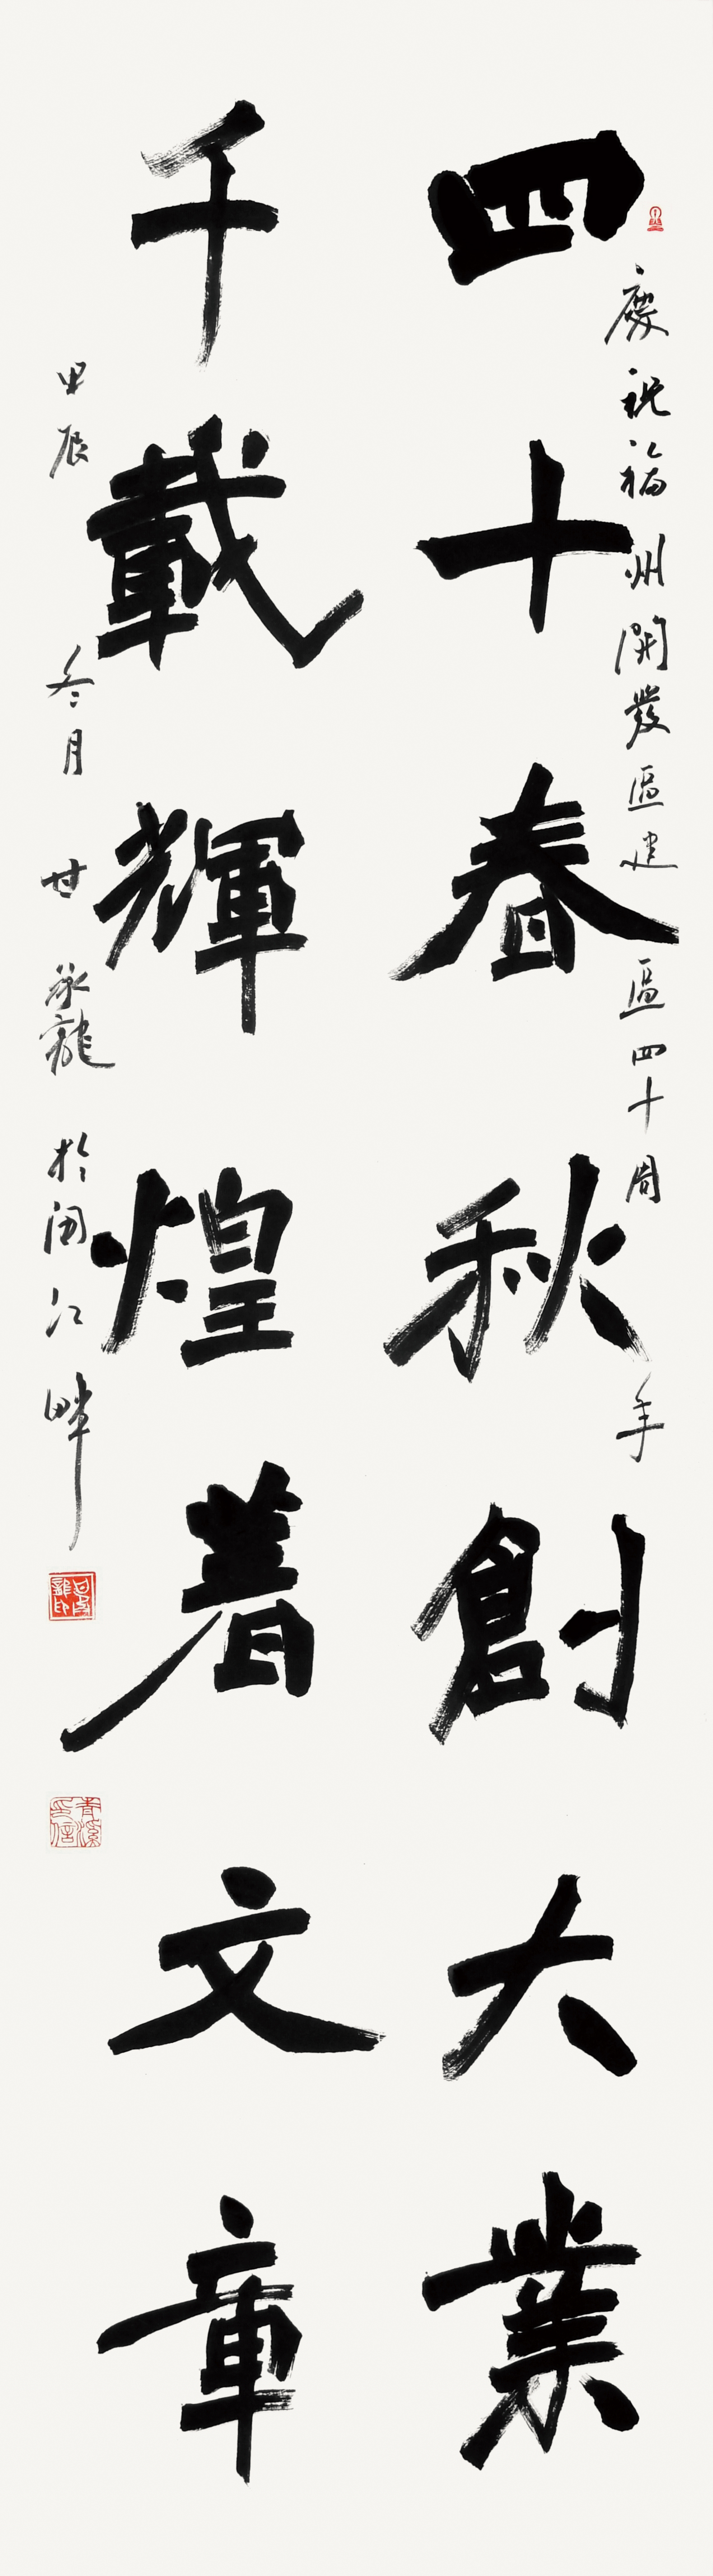 慶祝福州開發區建區四十周年
四十春秋創大業
千載輝煌著文章
甲辰冬月甘承龍於閩江畔
青溪印信